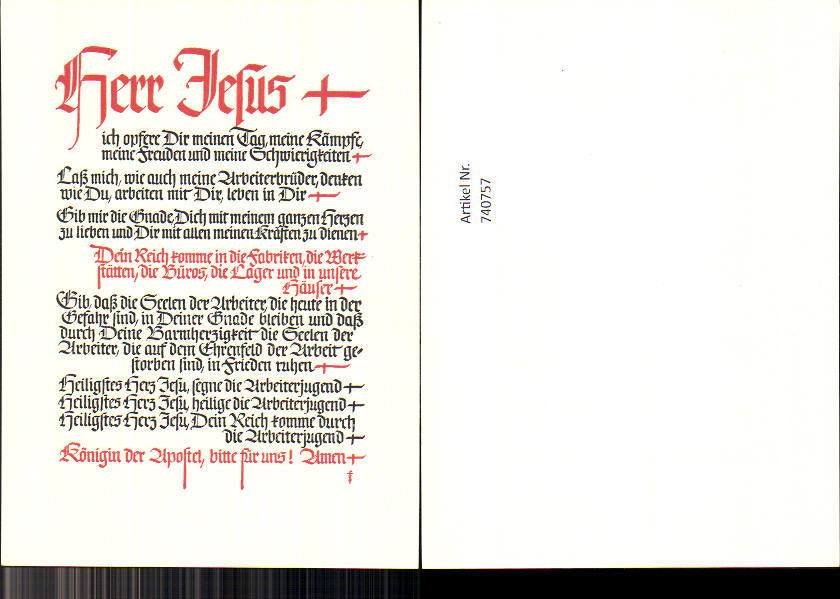 Herr Jesus +
ich opfere Dir meinen Tag, meine Kämpfe,
meine Freuden und meine Schwierigkeiten +
Laß mich, wie auch meine Arbeiterbrüder, denken
wie Du, arbeiten mit Dir, leben in Dir +
Gib mir die Gnade, Dich mit meinem ganzen Herzen
zu lieben und Dir mit allen meinen Kräften zu dienen +
Dein Reich komme in die Fabriken, die Werk-
stätten, die Büros, die Läger und in unsere
Häuser +
Gib, daß die Seelen der Arbeiter, die heute in der
Gefahr sind, in Deiner Gnade bleiben und daß
durch Deine Barmherzigkeit die Seelen der
Arbeiter, die auf dem Ehrenfeld der Arbeit ge-
storben sind, in Frieden ruhen +
Heiligstes Herz Jesu, segne die Arbeiterjugend +
Heiligstes Herz Jesu, heilige die Arbeiterjugend +
Heiligstes Herz Jesu, Dein Reich komme durch
die Arbeiterjugend +
Königin der Apostel, bitte für uns! Amen +
Artikel Nr.
740757